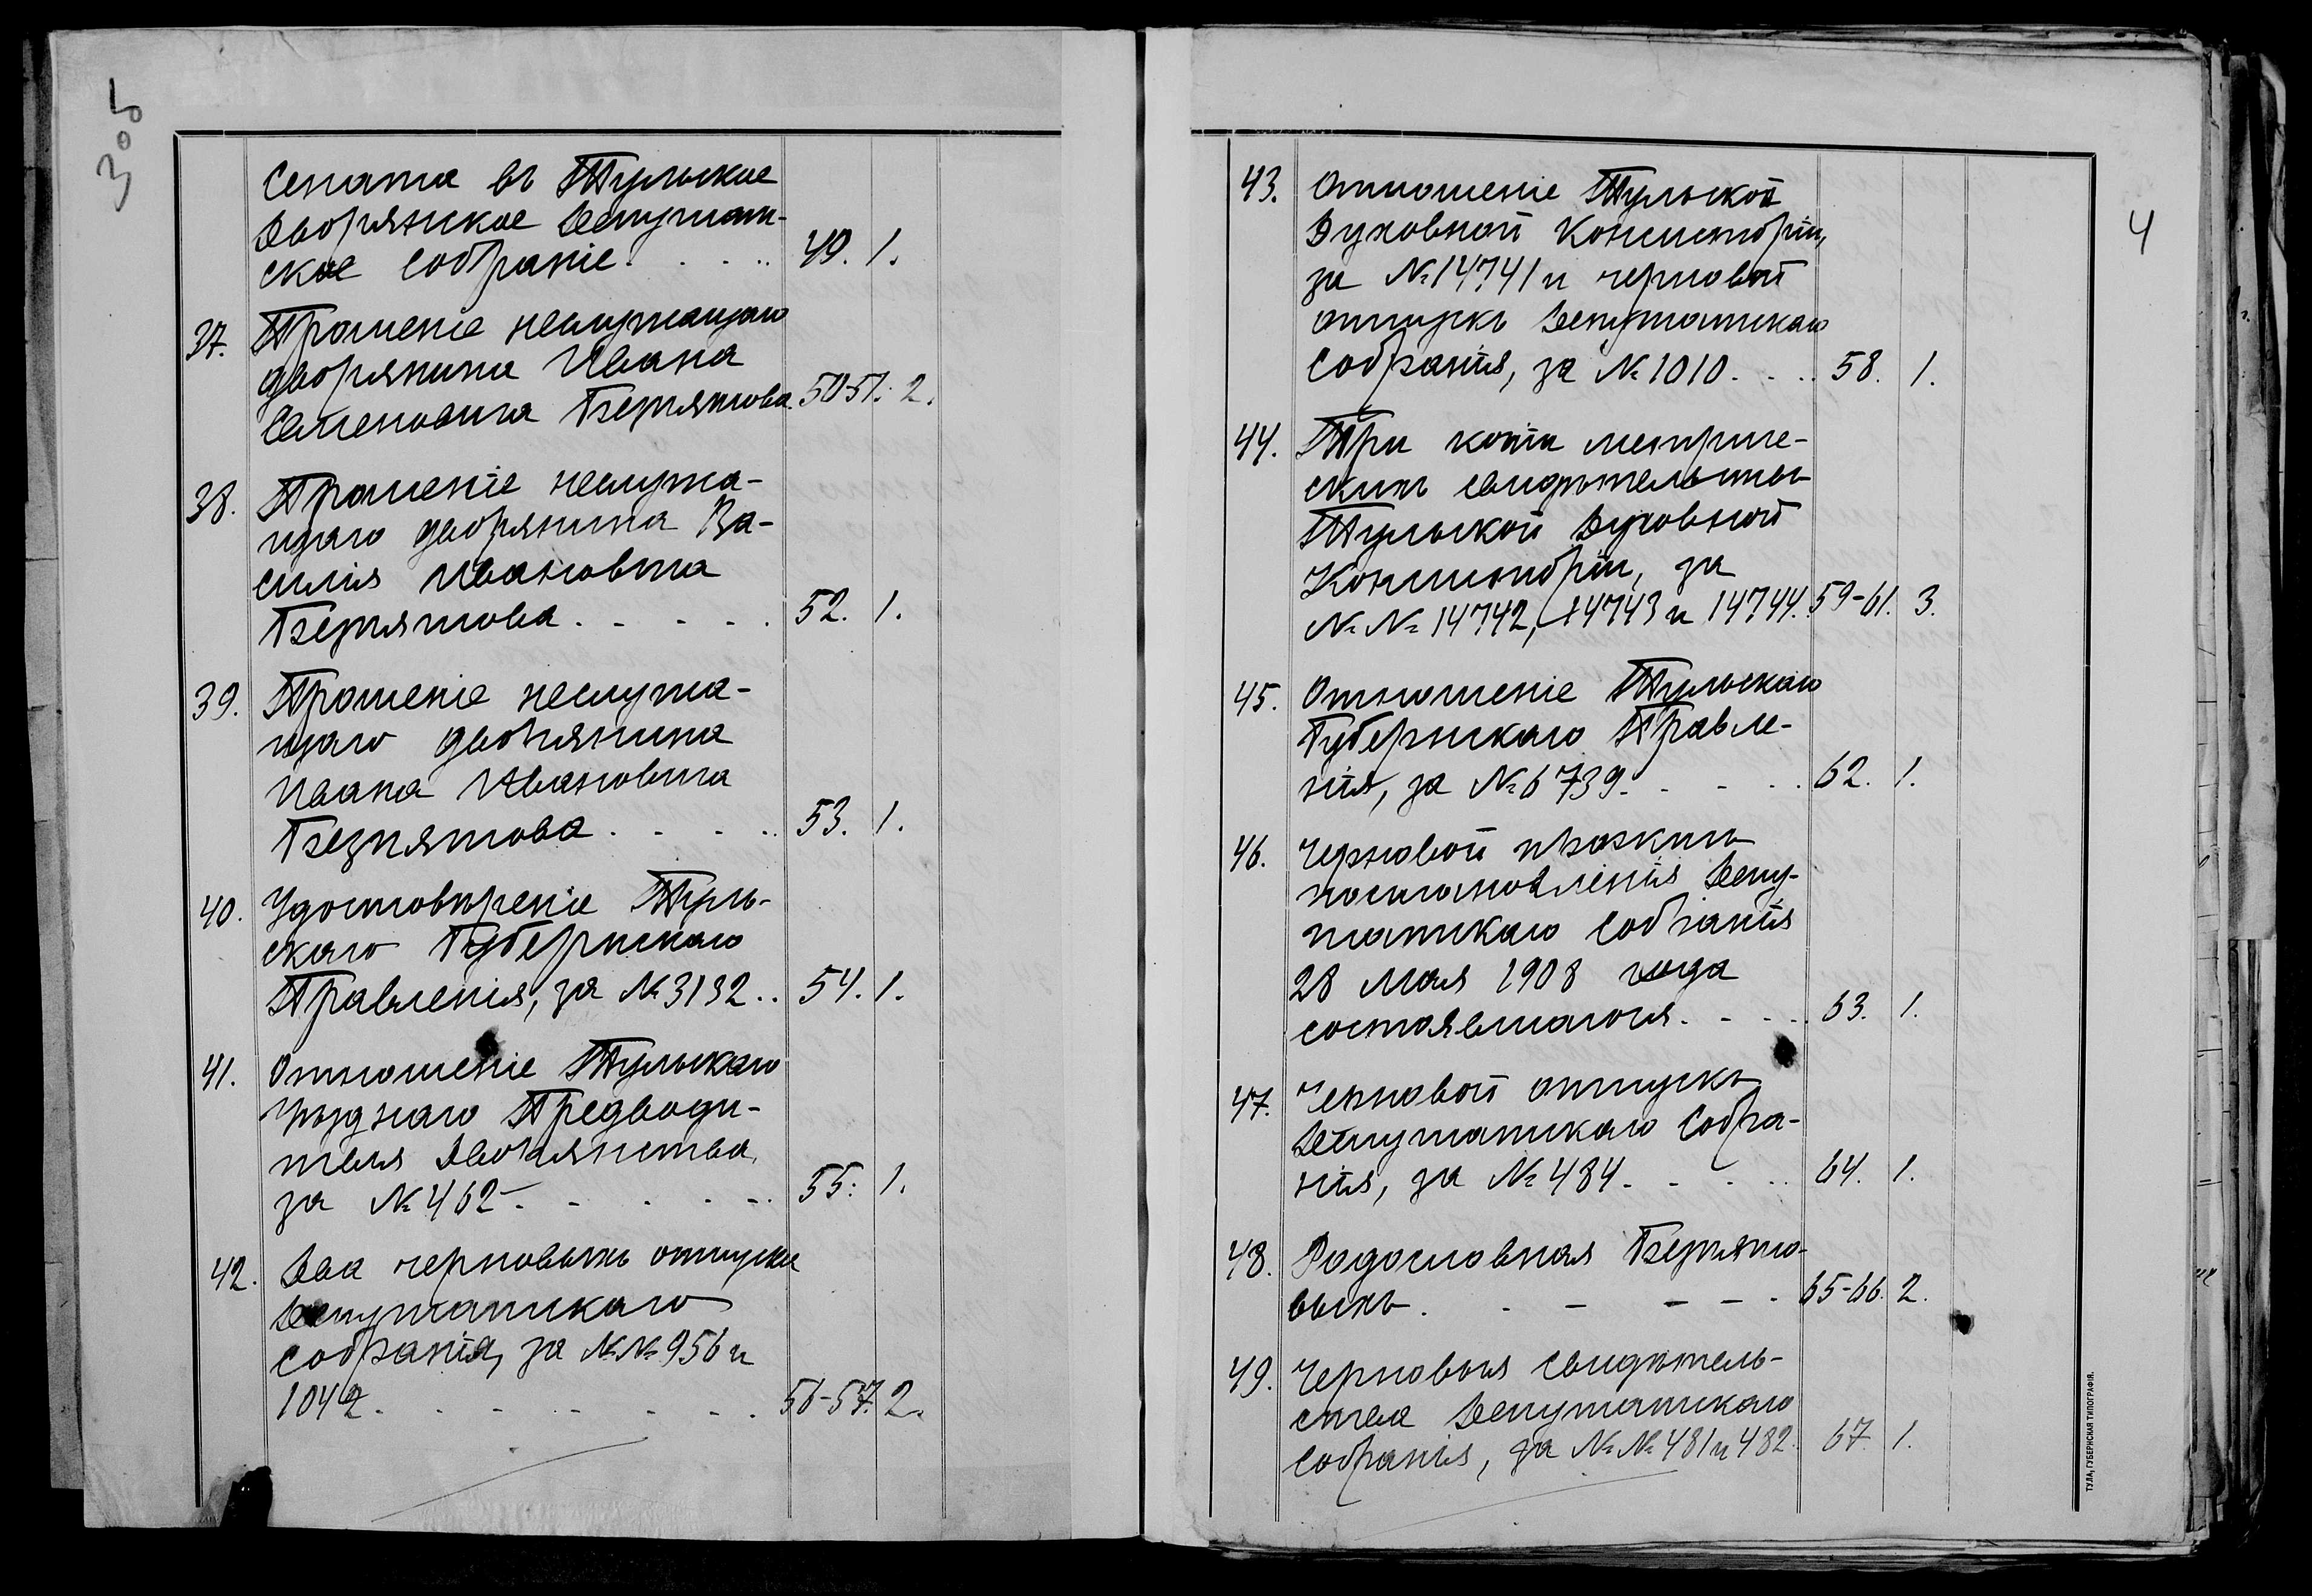 305
Сената въ Тульское
Дворянское Депутат-
ское Собраніе. . . . . 49. 1.
37. Прошеніе неслужащаго
дворянина Ивана
Семеновича Безпятова. 50-51. 2.
38. Прошеніе неслужа-
щаго дворянина Ва-
силія Ивановича
Безпятова. . . . . 52. 1.
39. Прошеніе неслужа-
щаго дворянина
Ивана Ивановича
Безпятова . . . . . 53. 1.
40. Удостовѣреніе Туль-
скаго Губернскаго
Правленія, за № 3132 . . 54. 1.
41. Отношеніе Тульскаго
Уѣзднаго Предводи-
теля Дворянства,
за № 462 - . - . . . - . 55. 1.
42. Два черновыхъ отпуска
Депутатскаго
Собранія, за №№ 956 и
1042. . - - - . - . . 56-57. 2.
4
43. Отношеніе Тульской
Духовной Консисторіи,
за № 14741 и черновой
отпускъ Депутатскаго
Собранія, за № 1010. . . . 58. 1.
44. Три копіи метриче-
скихъ свидѣтельствъ
Тульской Духовной
Консисторіи, за
№ № 14742, 14743 и 14744. 59-61. 3.
45. Отношеніе Тульскаго
Губернскаго Правле-
нія, за № 6739. - - . . 62. 1.
46. Черновой проэктъ
постановленія Депу-
татскаго Собранія
28 Мая 1908 года
состоявшагося. - - . . 63. 1.
47. Черновой отпускъ
Депутатскаго Собра-
нія, за № 484. - - . . 64. 1.
48. Родословная Безпято-
выхъ . - - - - . 65-66. 2.
49. Черновыя свидѣтель-
ства Депутатскаго
Собранія, за № № 481 и 482. 67. 1.
ТУЛА, ГУБЕРНСКАЯ ТИПОГРАФІЯ.